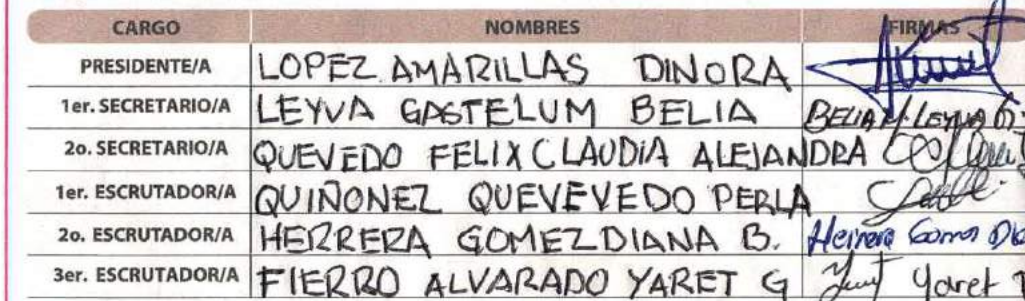 CARGO NOMBRES FIRMAS
PRESIDENTE/A LOPEZ AMARILLAS DINORA
1er. SECRETARIO/A LEYVA GASTELUM BELIA BELIA M. LEYVA G.
2o. SECRETARIO/A QUEVEDO FELIX CLAUDIA ALEJANDRA
1er. ESCRUTADOR/A QUIÑONEZ QUEVEVEDO PERLA
2o. ESCRUTADOR/A HERRERA GOMEZ DIANA B. Herrera Gomez
3er. ESCRUTADOR/A FIERRO ALVARADO YARET G Yaret